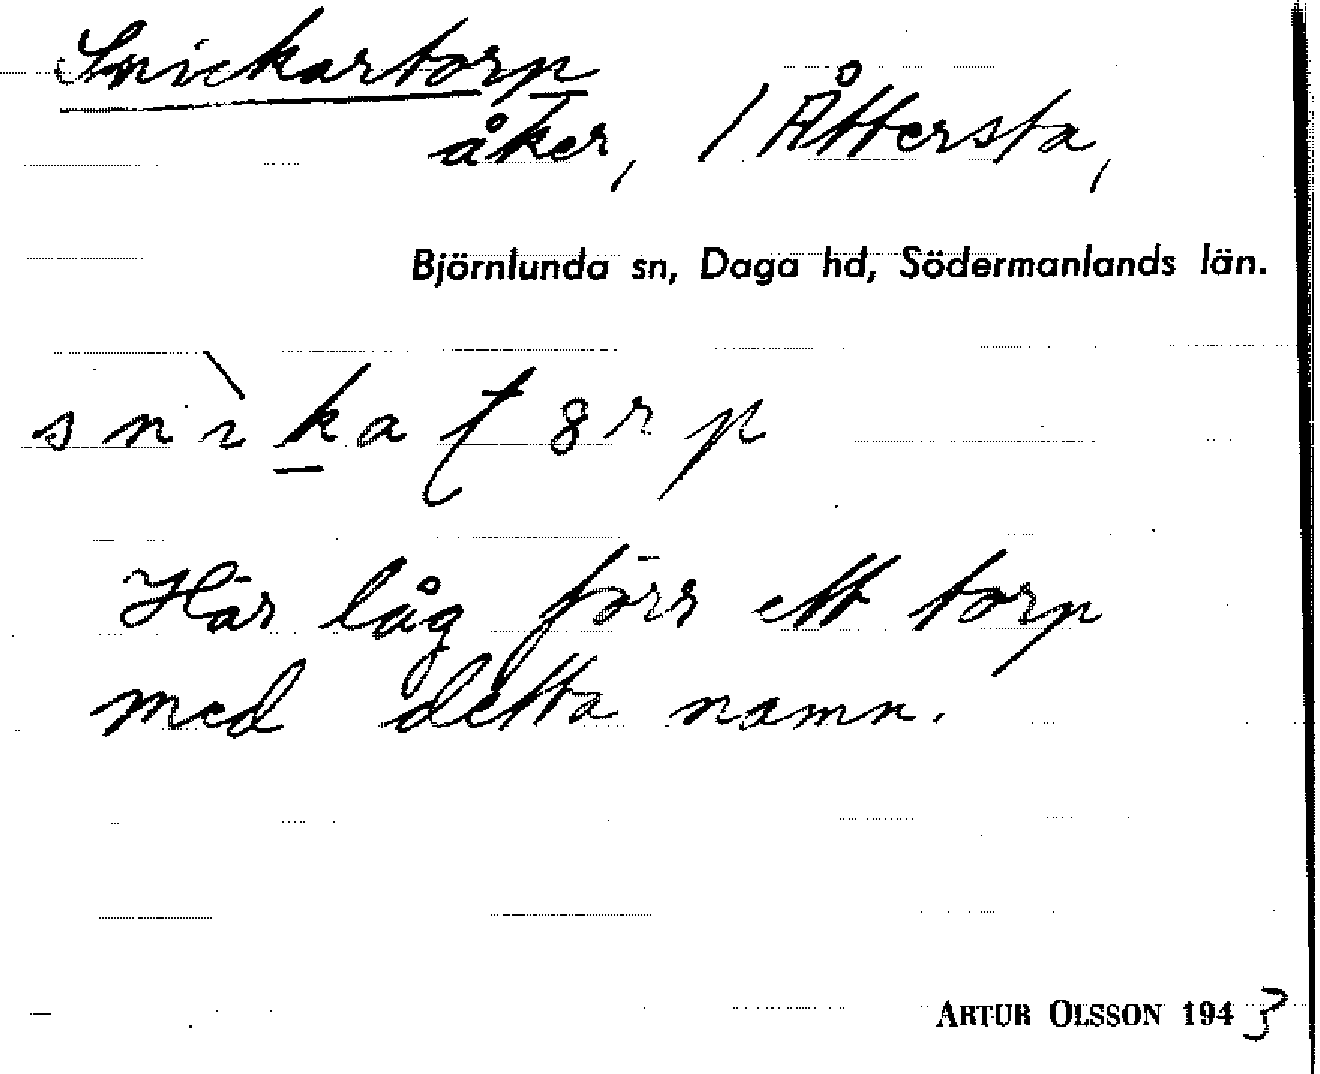 Snickartorp
åker, / Åttersta,
Björnlunda sn, Daga hd, Södermanlands län.
snı̀kaʈ8rp
Här låg förr ett torp
med detta namn.
ARTUR OLSSON 1943